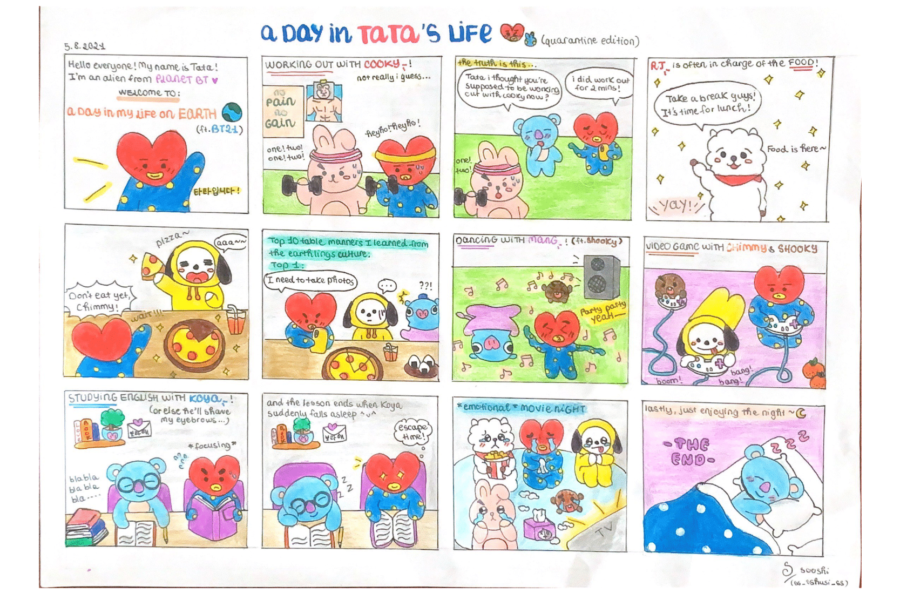 a DAY in TATA'S LiFE
(quarantine edition)
5.8.2021
Hello everyone! My name is Tata!
I'm an alien from PLANET BT
WELCOME TO:
a DAY in MY LiFE on EARTH
(ft. BT21)
타타입니다!
WORKING OUT WITH COOKY~!
not really i guess...
no
PaiN
no
GaiN
heyho! heyho!
one! two!
one! two!
the truth is this...
Tata i thought you're
supposed to be working
out with cooky now?
I did work out
for 2 mins!
one!
two!
RJ is often in charge of the FOOD!
Take a break guys!
It's time for lunch!
Food is here~
YAY!
pizza~
aaa~~
Don't eat yet,
Chimmy!
wait!!!
Top 10 table manners I learned from
the earthlings culture:
Top 1:
I need to take photos
...
??!
DANCING WITH MANG~! (ft. Shooky)
Party party
yeah~~
VIDEO GAME WITH CHIMMY & SHOOKY
boom!
bang!
bang!
STUDYING ENGLISH WITH KOYA~!
(or else he'll shave
my eyebrows...)
*focusing*
bla bla
bla bla
bla....
and the lesson ends when Koya
suddenly falls asleep ^v^
escape
time!
z z z
*emotional* MOVIE NIGHT
TV
lastly, just enjoying the night ~
-THE
END-
z z z
sooshi